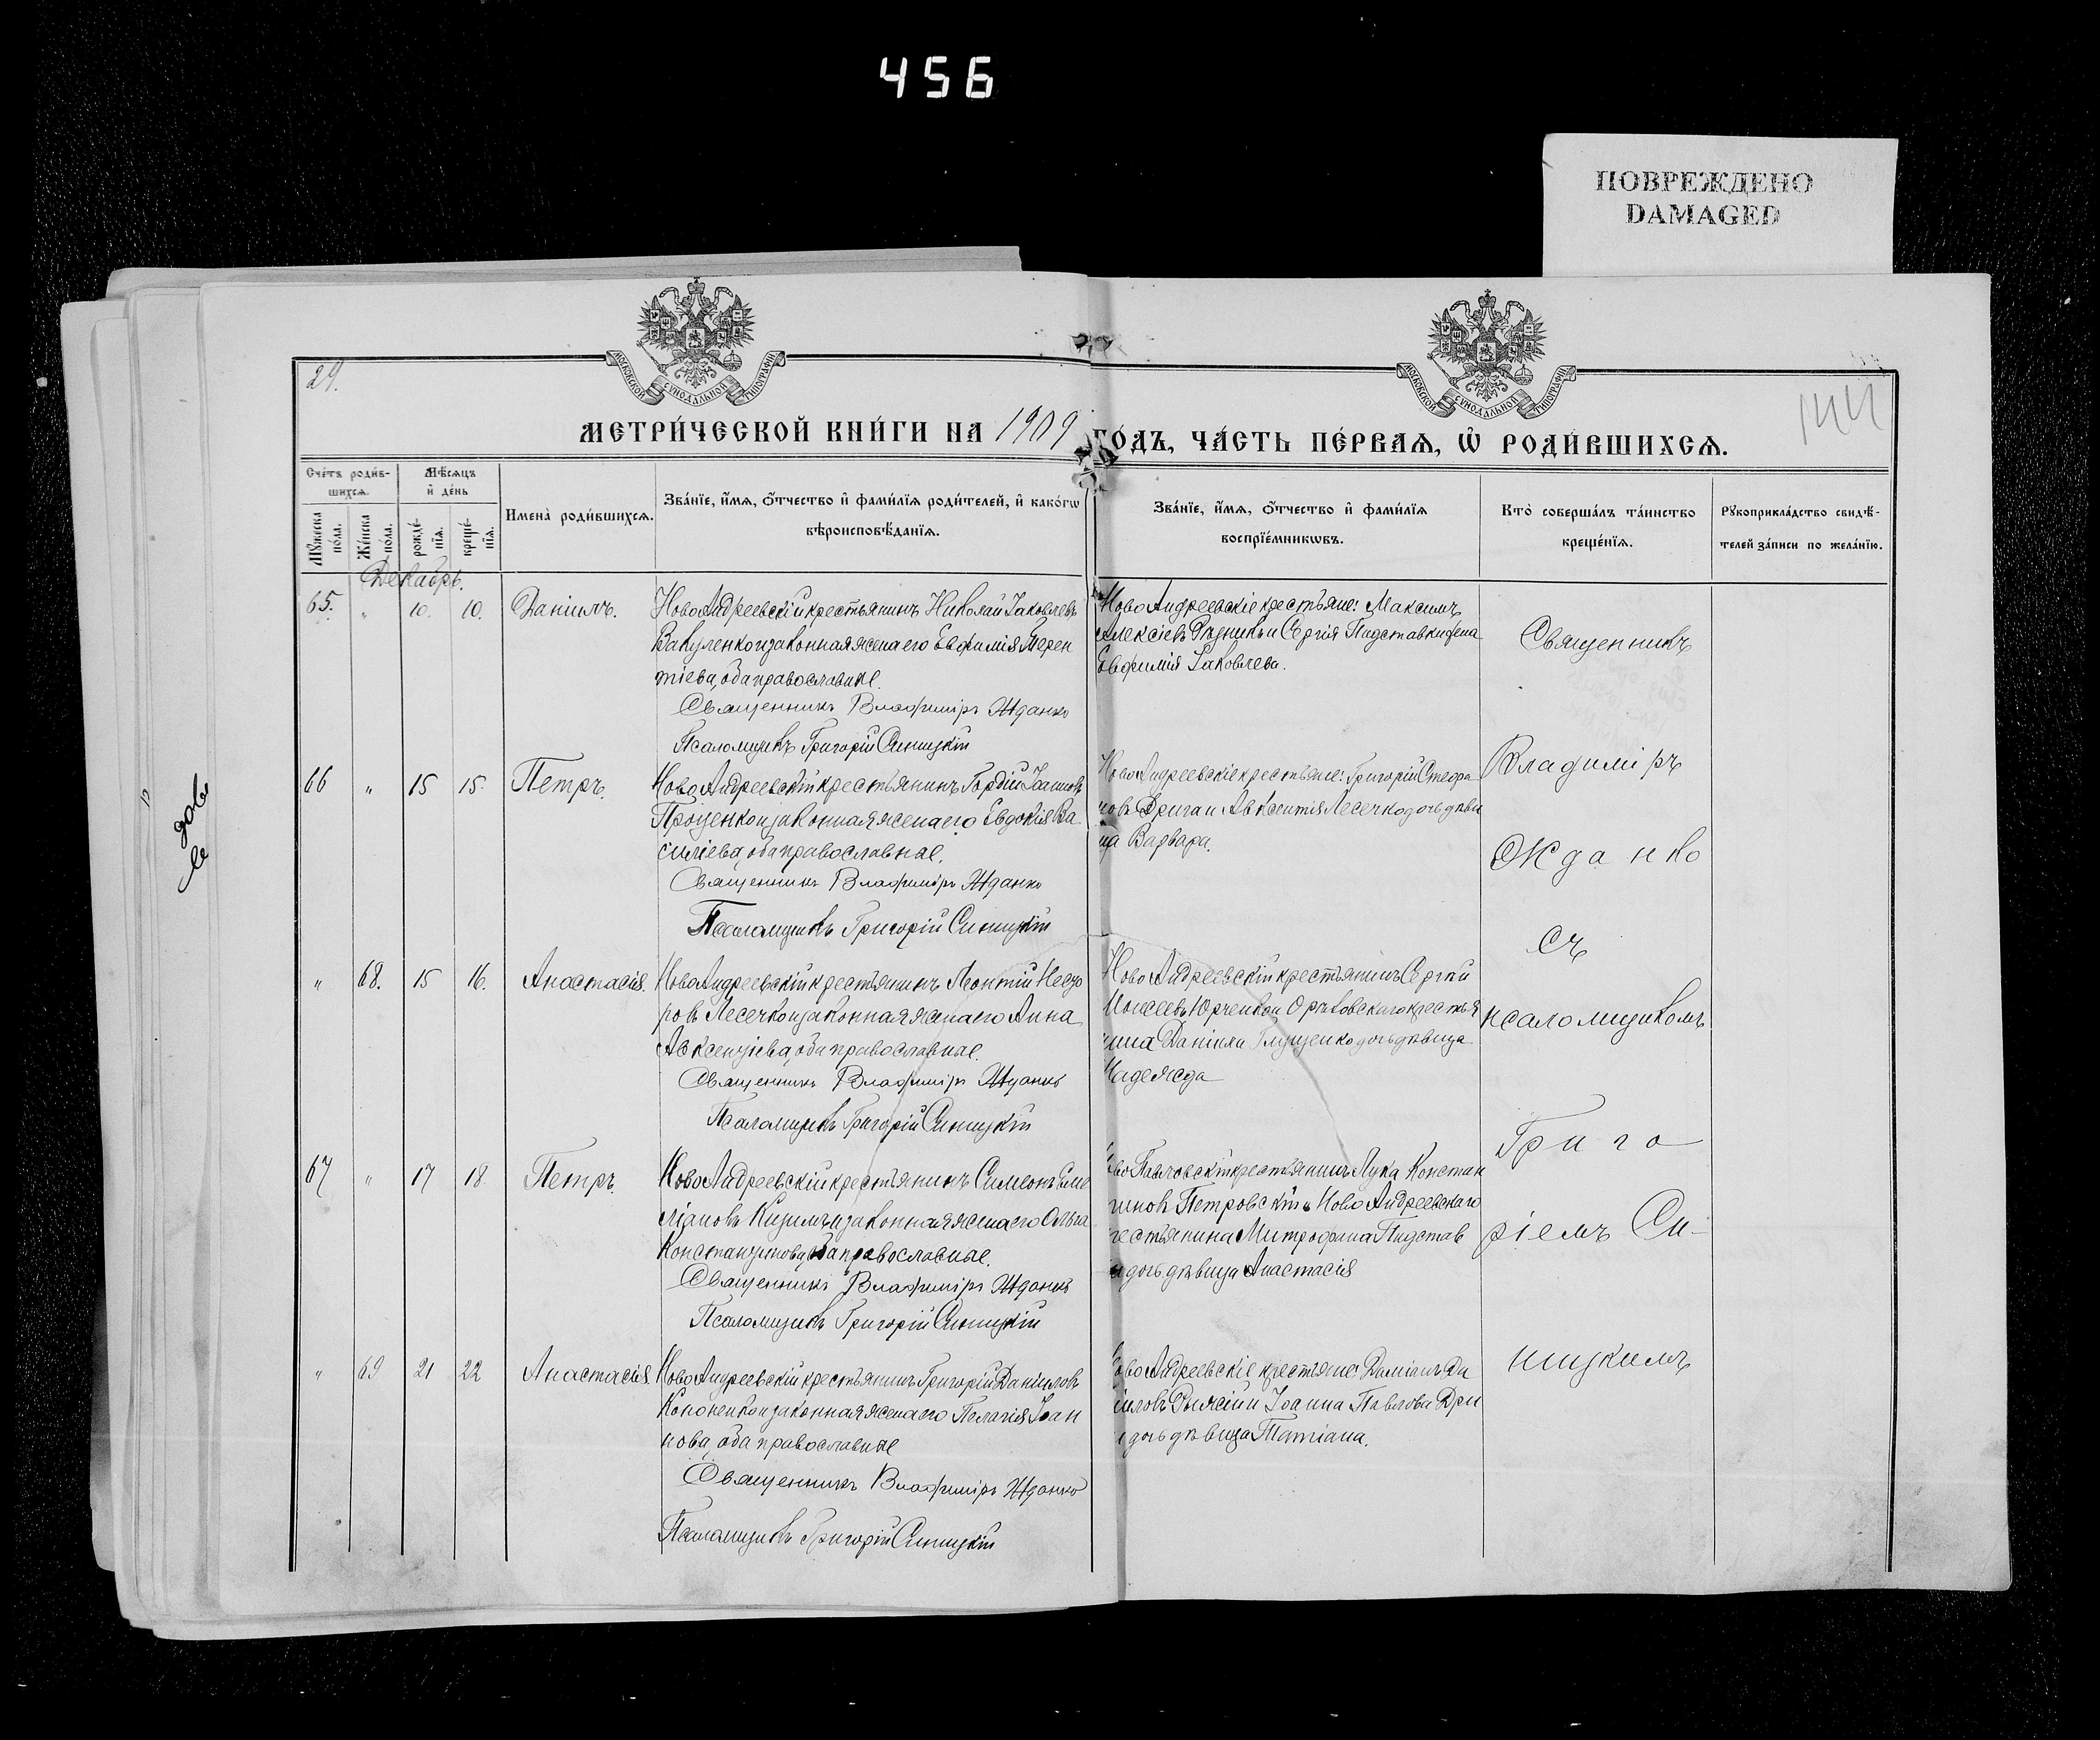 456
ПОВРЕЖДЕНО
DAMAGED
29.
МОСКОВСКОЙ СѴНОДАЛЬНОЙ ТИПОГРАФІИ
МОСКОВСКОЙ СѴНОДАЛЬНОЙ ТИПОГРАФІИ
144
МЕТРИ́ЧЕСКОЙ КНИ́ГИ НА 1909 ГО́ДЪ, ЧА́СТЬ ПЕ́РВАЯ, Ѡ РОДИ́ВШИХСЯ.
Сче́тъ роди́в-
шихся.
Мѣ́сяцъ
и҆ де́нь
Мꙋ́жеска
по́ла.
Же́нска
по́ла.
рожде́-
нїя.
креще́-
нїя.
Имена̀ роди́вшихся.
Зва́нїе, и҆́мя, ѻ҆́тчество и҆ фами́лїя роди́телей, и҆ како́гѡ
вѣроисповѣ́данїя.
Зва́нїе, и҆́мя, ѻ҆́тчество и҆ фами́лїя
воспрїе́мникѡвъ.
Кто̀ соверша́лъ та́инство
креще́нїя.
Рꙋкоприкла́дство свидѣ́-
телей за́писи по жела́нїю.
Декабрь.
65. " 10. 10. Даніилъ.
НовоАндреевскій крестьянинъ Николай Іаковлевъ
Вакуленко и законная жена его Евфимія Терен
тіева, оба православные.
Священникъ Владиміръ Жданко
Псаломщикъ Григорій Синицкій
НовоАндреевскіе крестьяне: Максимъ
Алексіевъ Рѣзникъ и Сергія Пидставки жена
Евфимія Іаковлева.
66 " 15 15. Петръ.
НовоАндреевскій крестьянинъ Гордій Іоанновъ
Проценко и законная жена его Евдокія Ва
силіева, оба православные.
Священникъ Владиміръ Жданко
Псаломщикъ Григорій Синицкій
НовоАндреевскіе крестьяне: Григорій Стефа
новъ Дрига и Авксентія Лесечко дочь дѣви
ца Варвара.
" 68. 15 16. Анастасія.
НовоАндреевскій крестьянинъ Леонтій Несто
ровъ Лесечко и законная жена его Анна
Авксентіева, оба православные.
Священникъ Владиміръ Жданко
Псаломщикъ Григорій Синицкій
НовоАндреевскій крестьянинъ Сергій
Моисеевъ Юрченко и Орѣховскаго крестья
нина Даніила Глущенко дочь дѣвица
Надежда
67 " 17 18. Петръ.
НовоАндреевскій крестьянинъ Симеонъ Еме
ліановъ Кизимъ и законная жена его Ольга
Константинова, оба православные.
Священникъ Владиміръ Жданко
Псаломщикъ Григорій Синицкій
во Павловскій крестьянинъ Лука Констан
тиновъ Петровскій и Ново Андреевскаго
рестьянина Митрофана Пидстав
дочь дѣвица Анастасія
" 69 21 22 Анастасія.
НовоАндреевскій крестьянинъ Григорій Даніиловъ
Кононенко и законная жена его Пелагія Іоан
нова, оба православные
Священникъ Владиміръ Жданко
Псаломщикъ Григорій Синицкій
ово Андреевскіе крестьяне: Даміанъ Да
ииловъ и Іоанна Павлова Дри
дочь дѣвица Татіана.
Священникъ
Владиміръ
Жданко
съ
псаломщикомъ
Григо
ріемъ Си-
ницкимъ